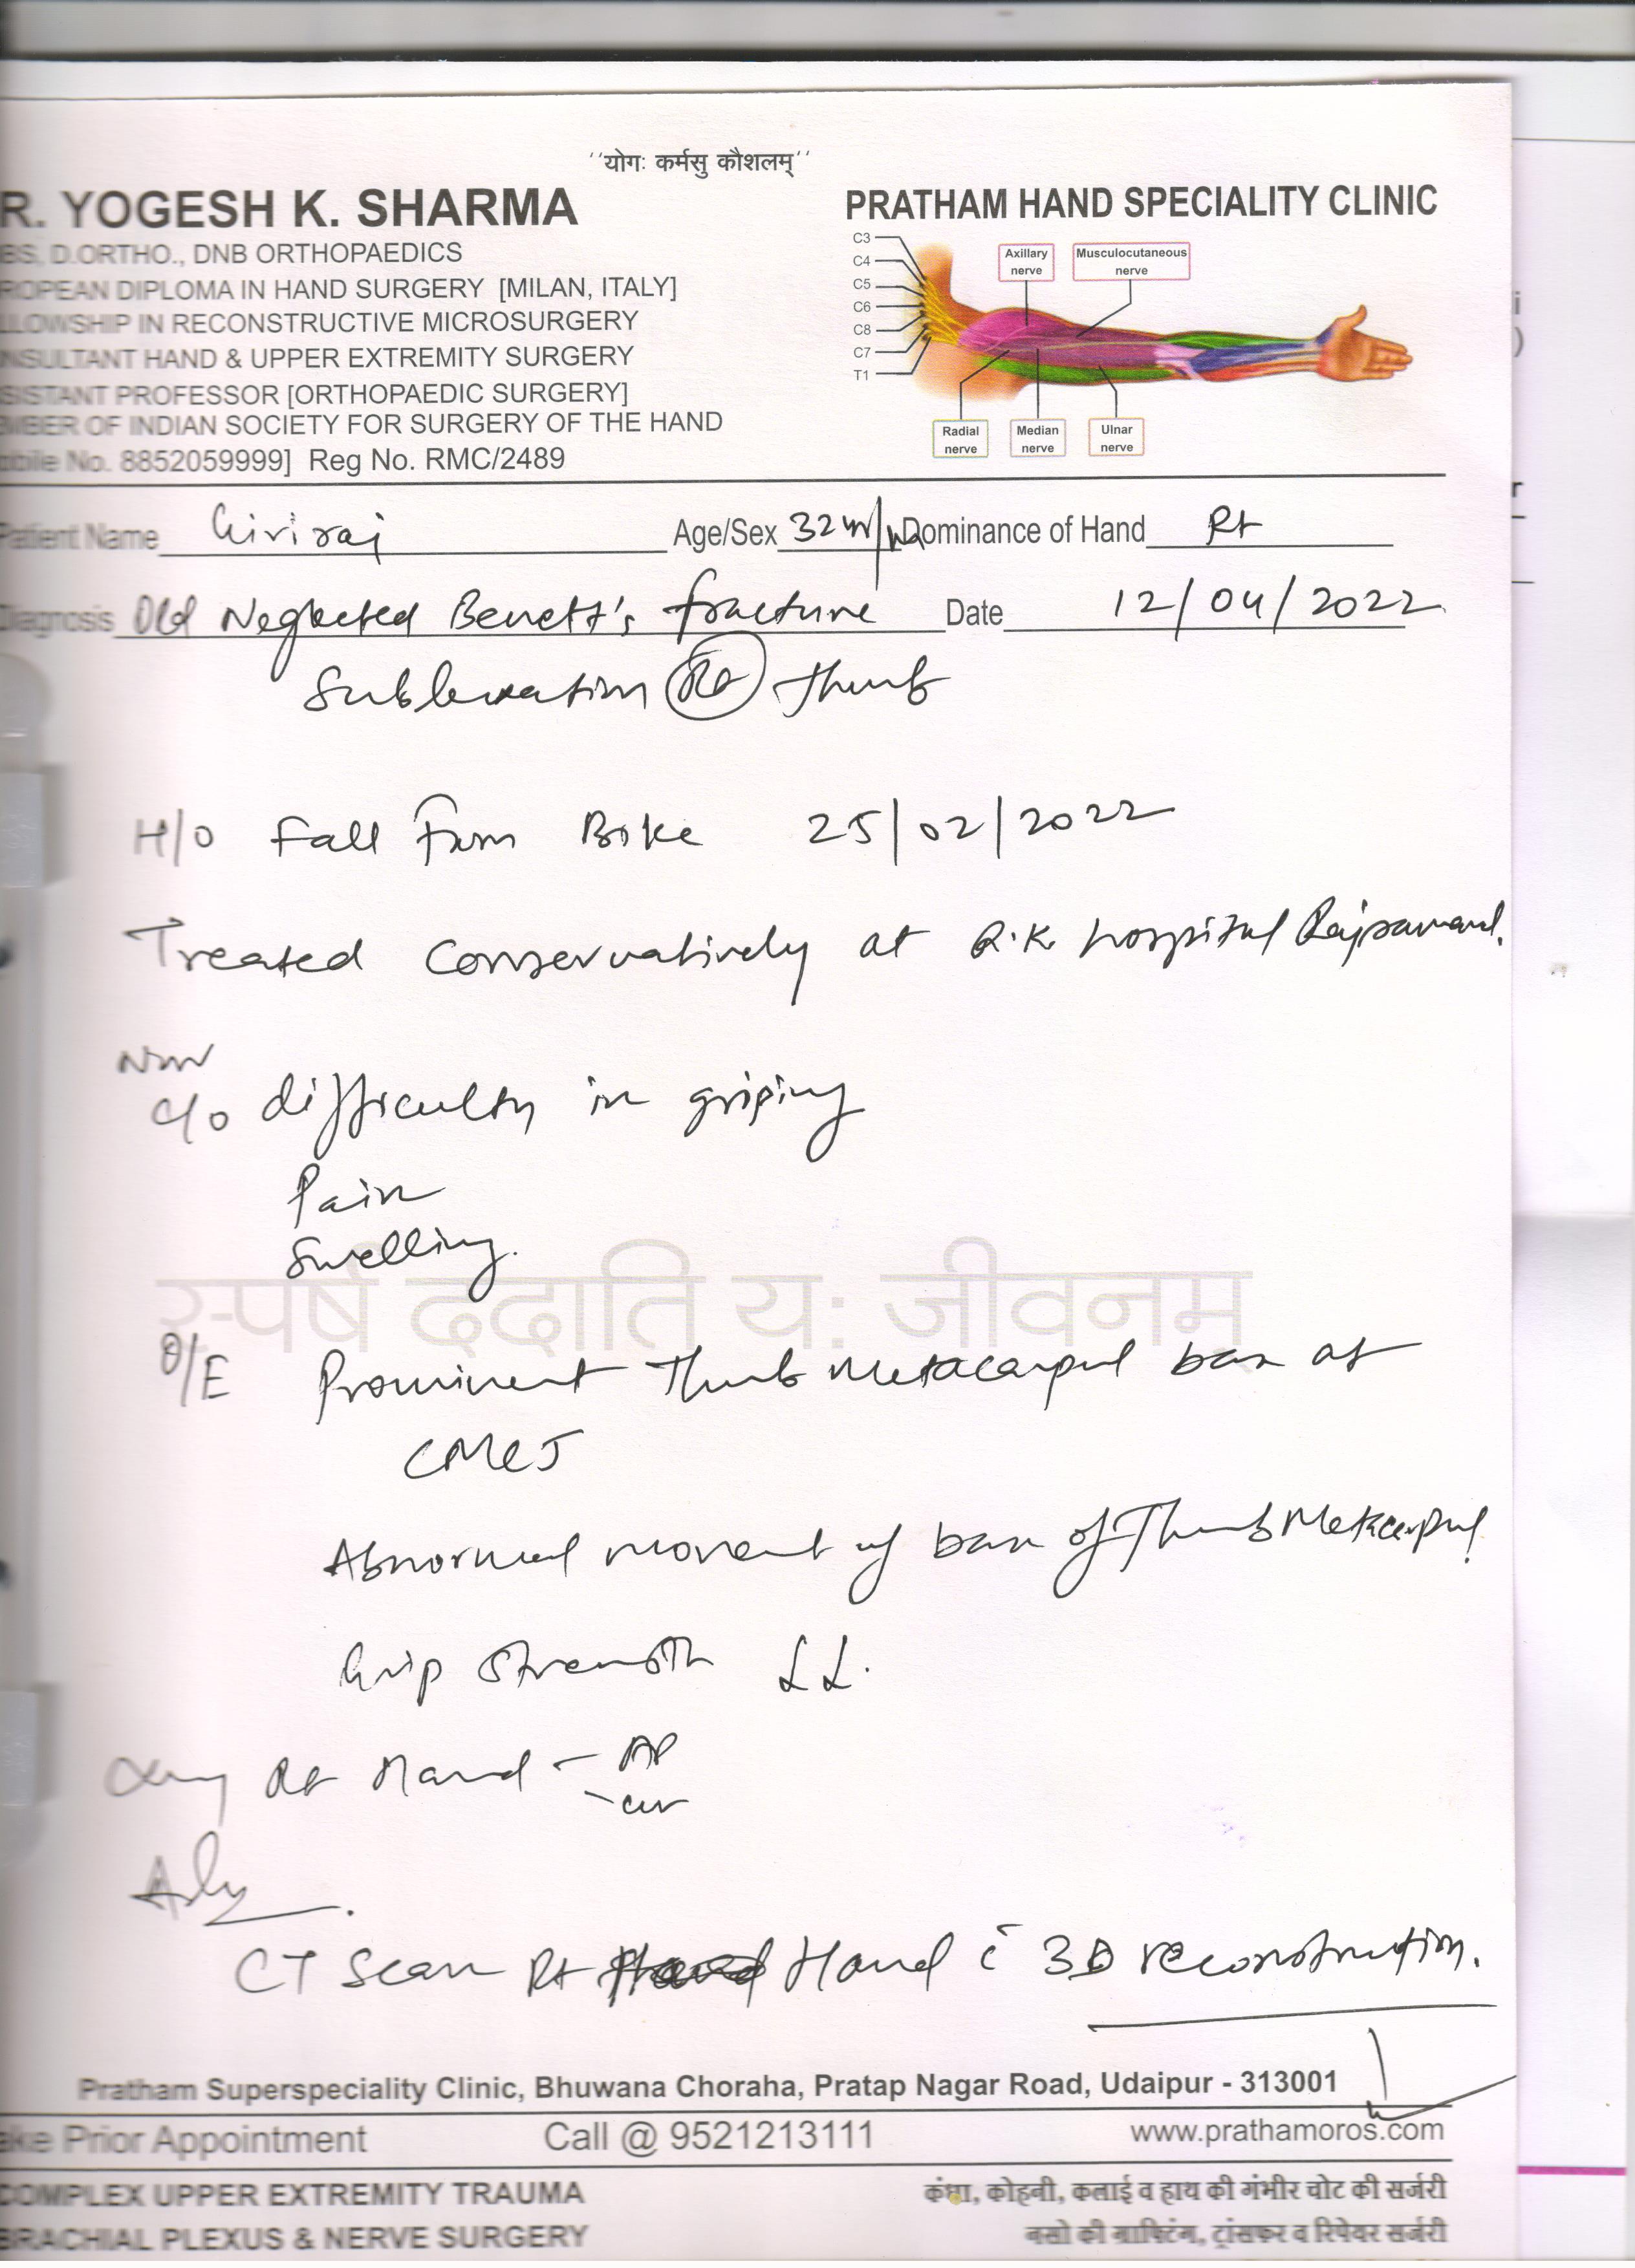 ''योगः कर्मसु कौशलम्''
R. YOGESH K. SHARMA
BS, D.ORTHO., DNB ORTHOPAEDICS
ROPEAN DIPLOMA IN HAND SURGERY [MILAN, ITALY]
LLOWSHIP IN RECONSTRUCTIVE MICROSURGERY
NSULTANT HAND & UPPER EXTREMITY SURGERY
SISTANT PROFESSOR [ORTHOPAEDIC SURGERY]
MBER OF INDIAN SOCIETY FOR SURGERY OF THE HAND
obile No. 8852059999] Reg No. RMC/2489
PRATHAM HAND SPECIALITY CLINIC
C3
C4
C5
C6
C8
C7
T1
Axillary nerve
Musculocutaneous nerve
Radial nerve
Median nerve
Ulnar nerve
Patient Name Giriraj Age/Sex 32 yr/M Dominance of Hand Rt
Diagnosis Old Neglected Benett's fracture Date 12/04/2022
Subluxation Rt Thumb
H/o Fall from Bike 25/02/2022
Treated Conservatively at R.K. Hospital Rajsamand.
Now
c/o difficulty in griping
Pain
Swelling.
स्पर्ष ददाति यः जीवनम्
O/E Prominent Thumb Metacarpal base at
CMCJ
Abnormal movement of base of Thumb Metacarpal
Grip Strength LL.
Xray Rt Hand - AP
Adv
CT Scan Rt Hand c̄ 3D reconstruction.
Pratham Superspeciality Clinic, Bhuwana Choraha, Pratap Nagar Road, Udaipur - 313001
ake Prior Appointment Call @ 9521213111 www.prathamoros.com
COMPLEX UPPER EXTREMITY TRAUMA
कंधा, कोहनी, कलाई व हाथ की गंभीर चोट की सर्जरी
BRACHIAL PLEXUS & NERVE SURGERY
नसो की ग्राफ्टिंग, ट्रांसफर व रिपेयर सर्जरी